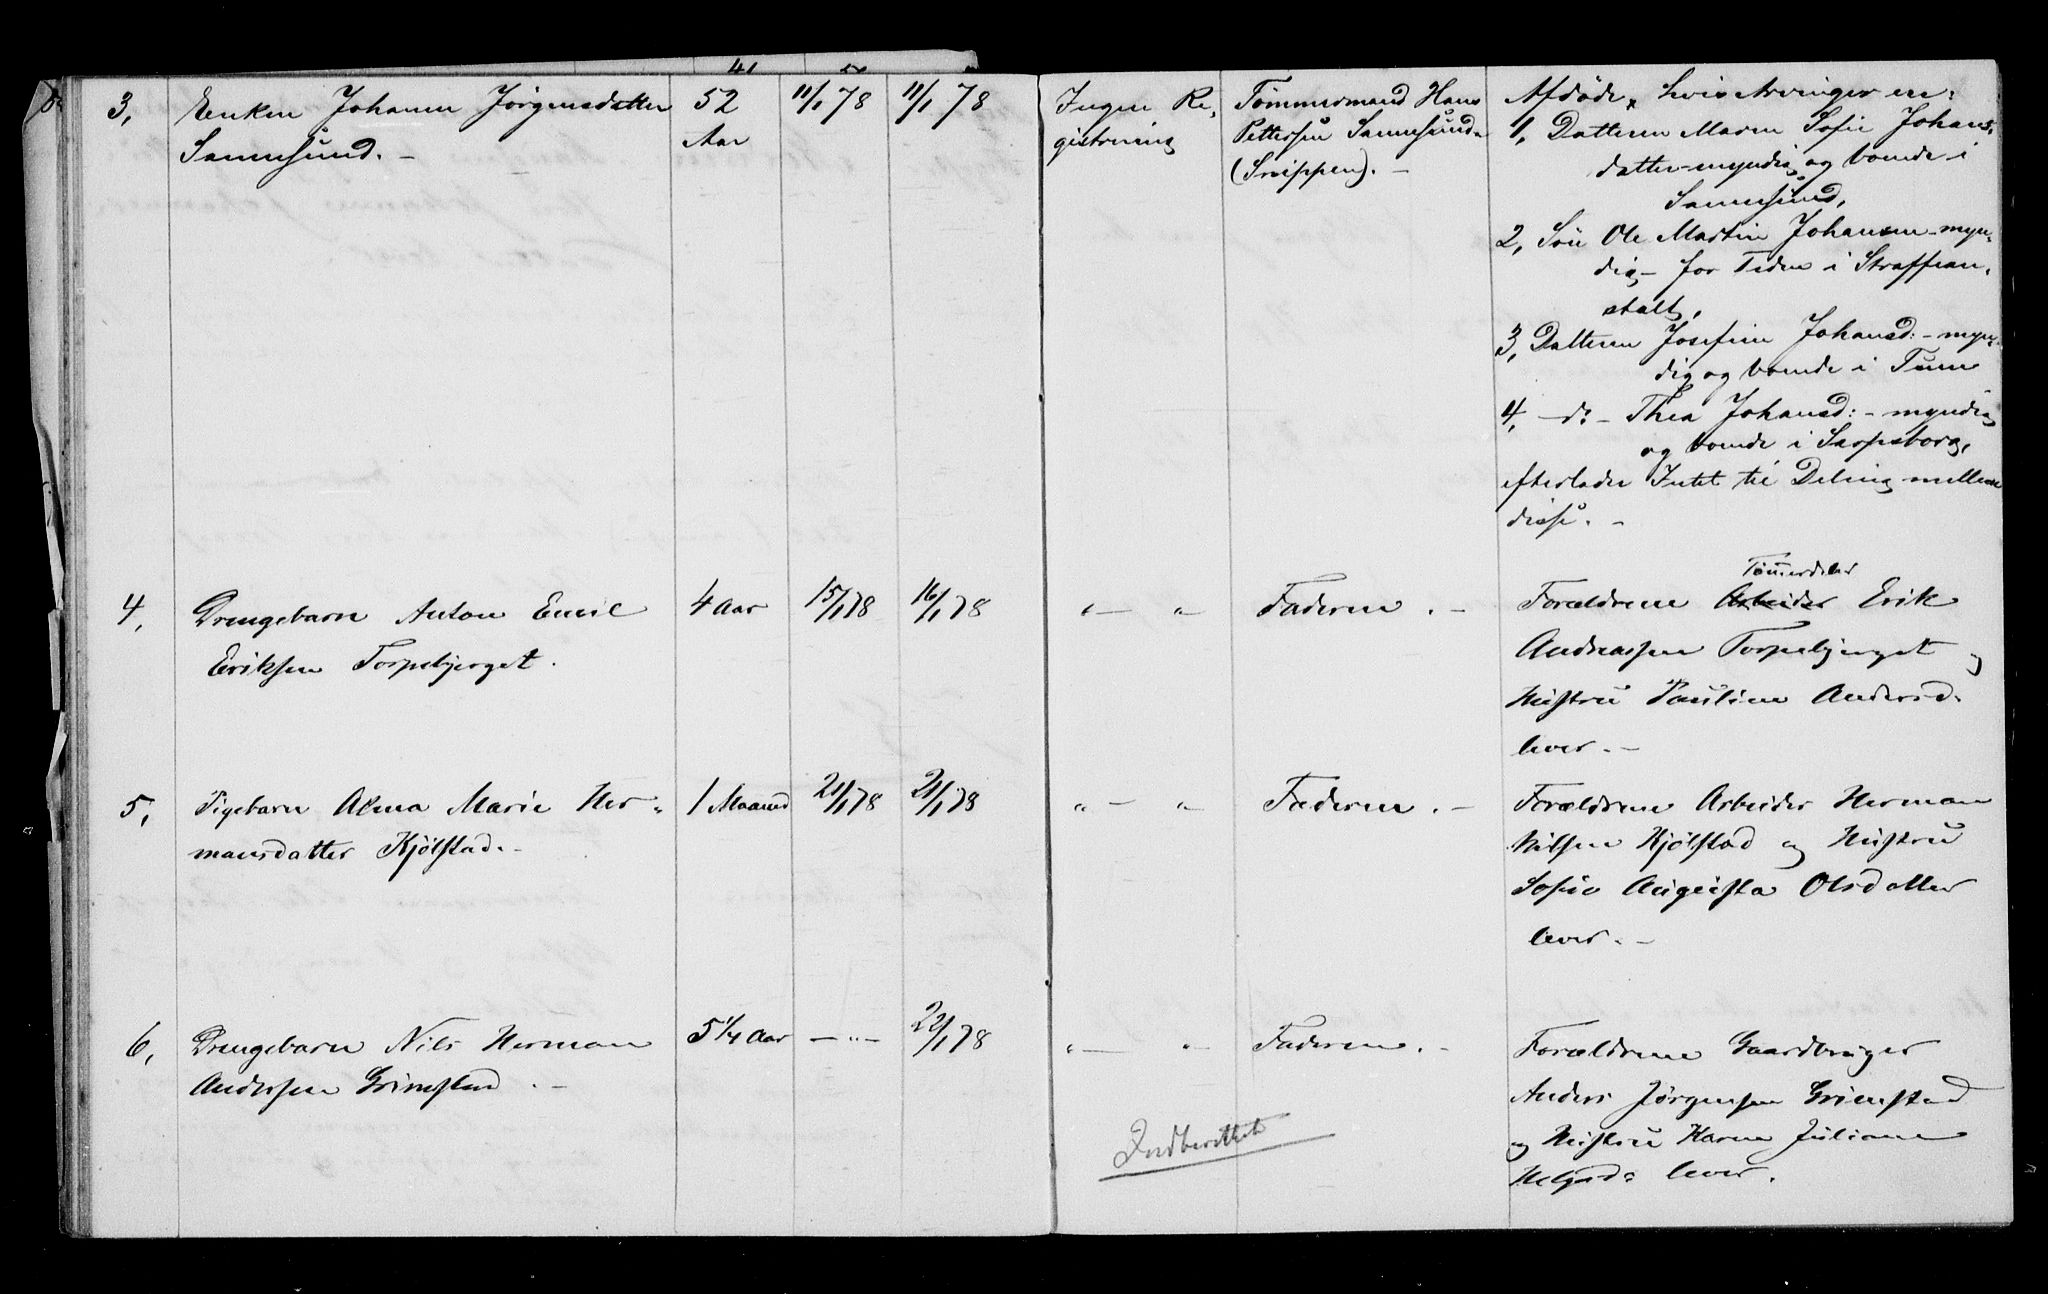 3, Enken Johanne Jörgensdatter 52 11/1 78 11/1 78 Ingen Re- Tømmermand Hans Afdöde, hvis Arvinger er:
Sannesund. - Aar gistrering Pettersen Sannesund- 1, Datteren Maren Sofie Johans-
(Snippen). - datter - myndig og boende i
Sannesund,
2, Sön Ole Martin Johansen - myn-
dig - for Tiden i Straffean-
stalt,
3, Datteren Josefine Johansd: - myn-
dig og boende i Tune
4, - do - Thea Johansd: - myndig
og boende i Sarpsborg,
efterlader Intet til Deling mellem
disse. -
Tömmerdeler
4, Drengebarn Anton Emil 4 Aar 15/1 78 16/1 78 " — " Faderen. - Forældrene Arbeider Erik
Eriksen Torpebjerget. Andreassen Torpebjerget og
Hustru Pauline Andersd.
lever. -
5, Pigebarn Alma Marie Her- 1 Maaned 21/1 78 21/1 78 " — " Faderen. - Forældrene Arbeider Herman
mansdatter Kjölstad. - Nilsen Kjölstad og Hustru
Sofie Augusta Olsdatter
lever. -
6, Drengebarn Nils Herman 5 1/4 Aar — " — 22/1 78 " — " Faderen. - Forældrene Gaardbruger
Andersen Grimstad. - Anders Jørgensen Grimstad
og Hustru Karen Juliane
Helgesd: lever.
Indberettet